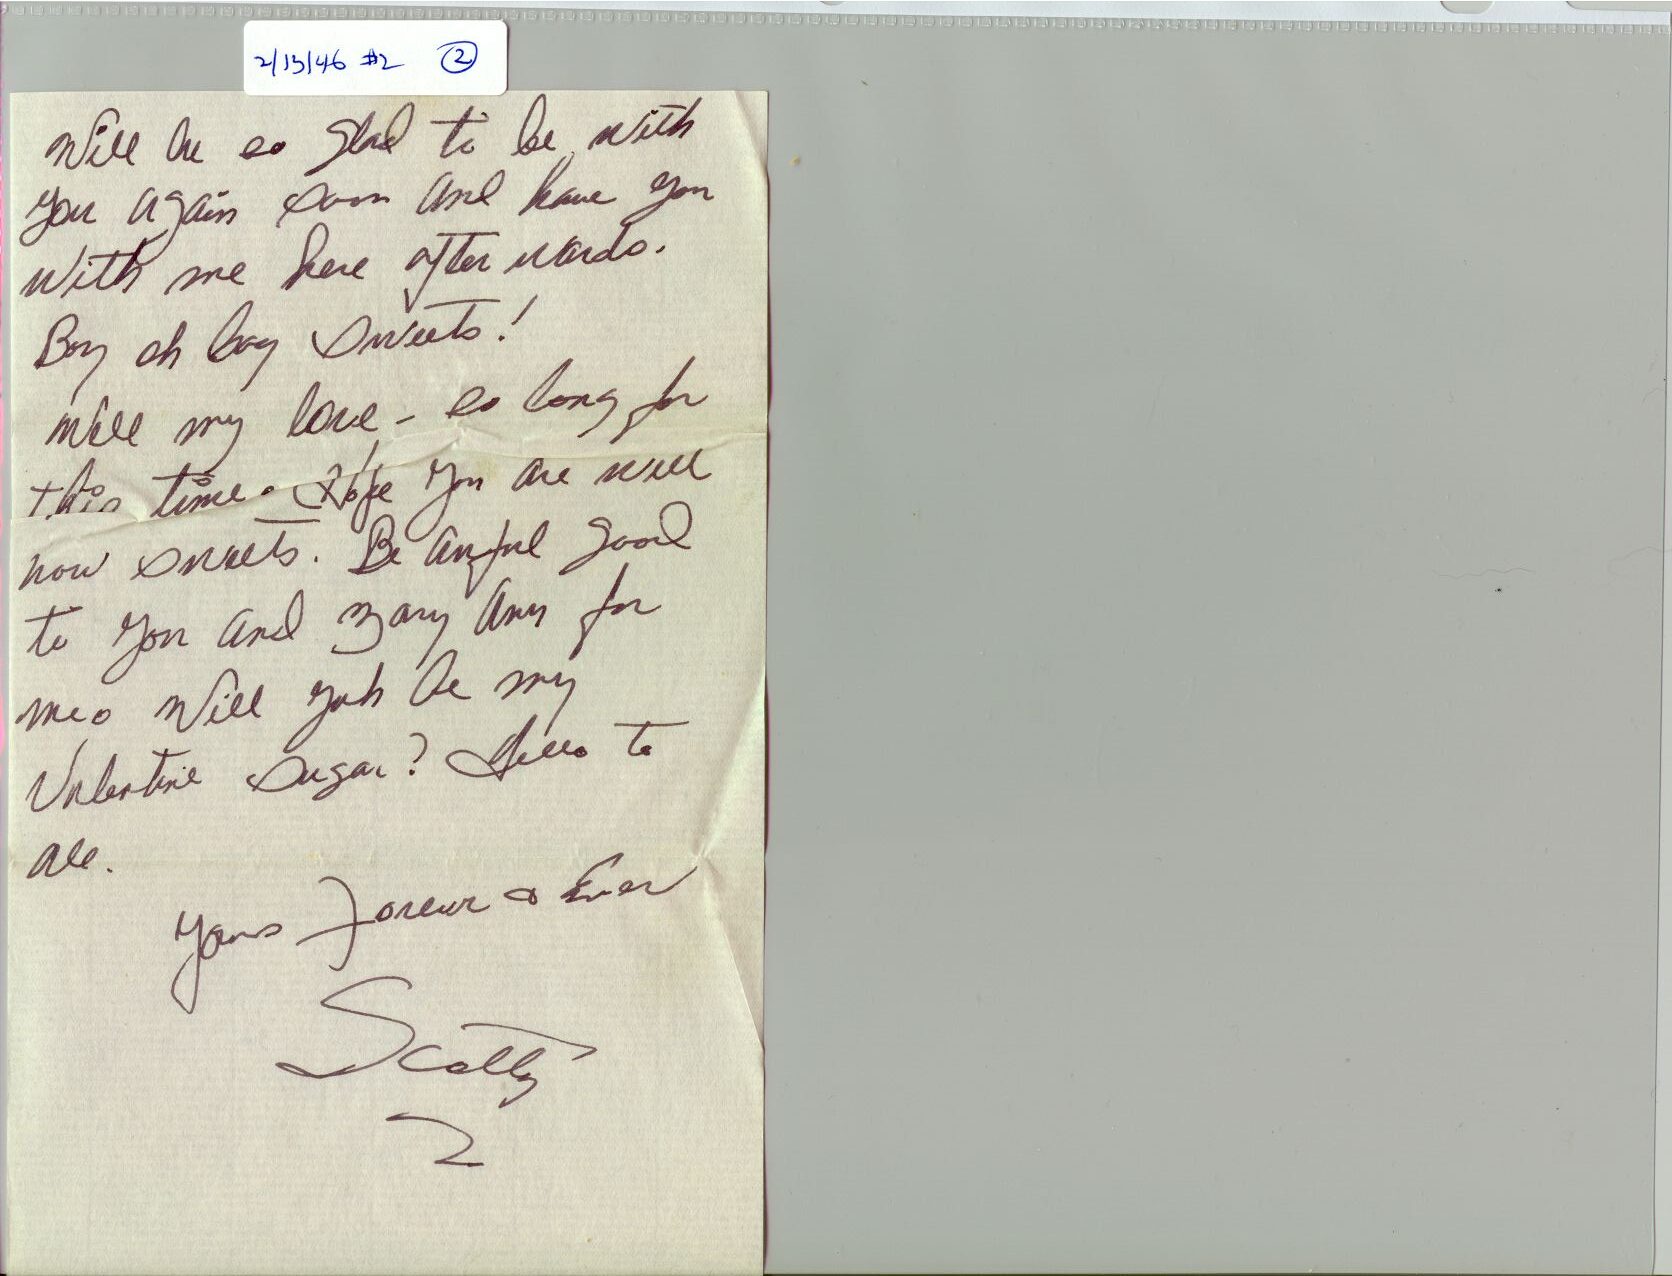 2/13/46 #2 ②
Will be so glad to be with
you again soon and have you
with me here afterwards.
Boy oh boy sweets!
Well my love - so long for
this time. Hope you are well
now sweets. Be awful good
to you and Mary Ann for
me. Will yuh be my
Valentine sugar? Hello to
all.
Yours Forever & Ever
Scotty
2